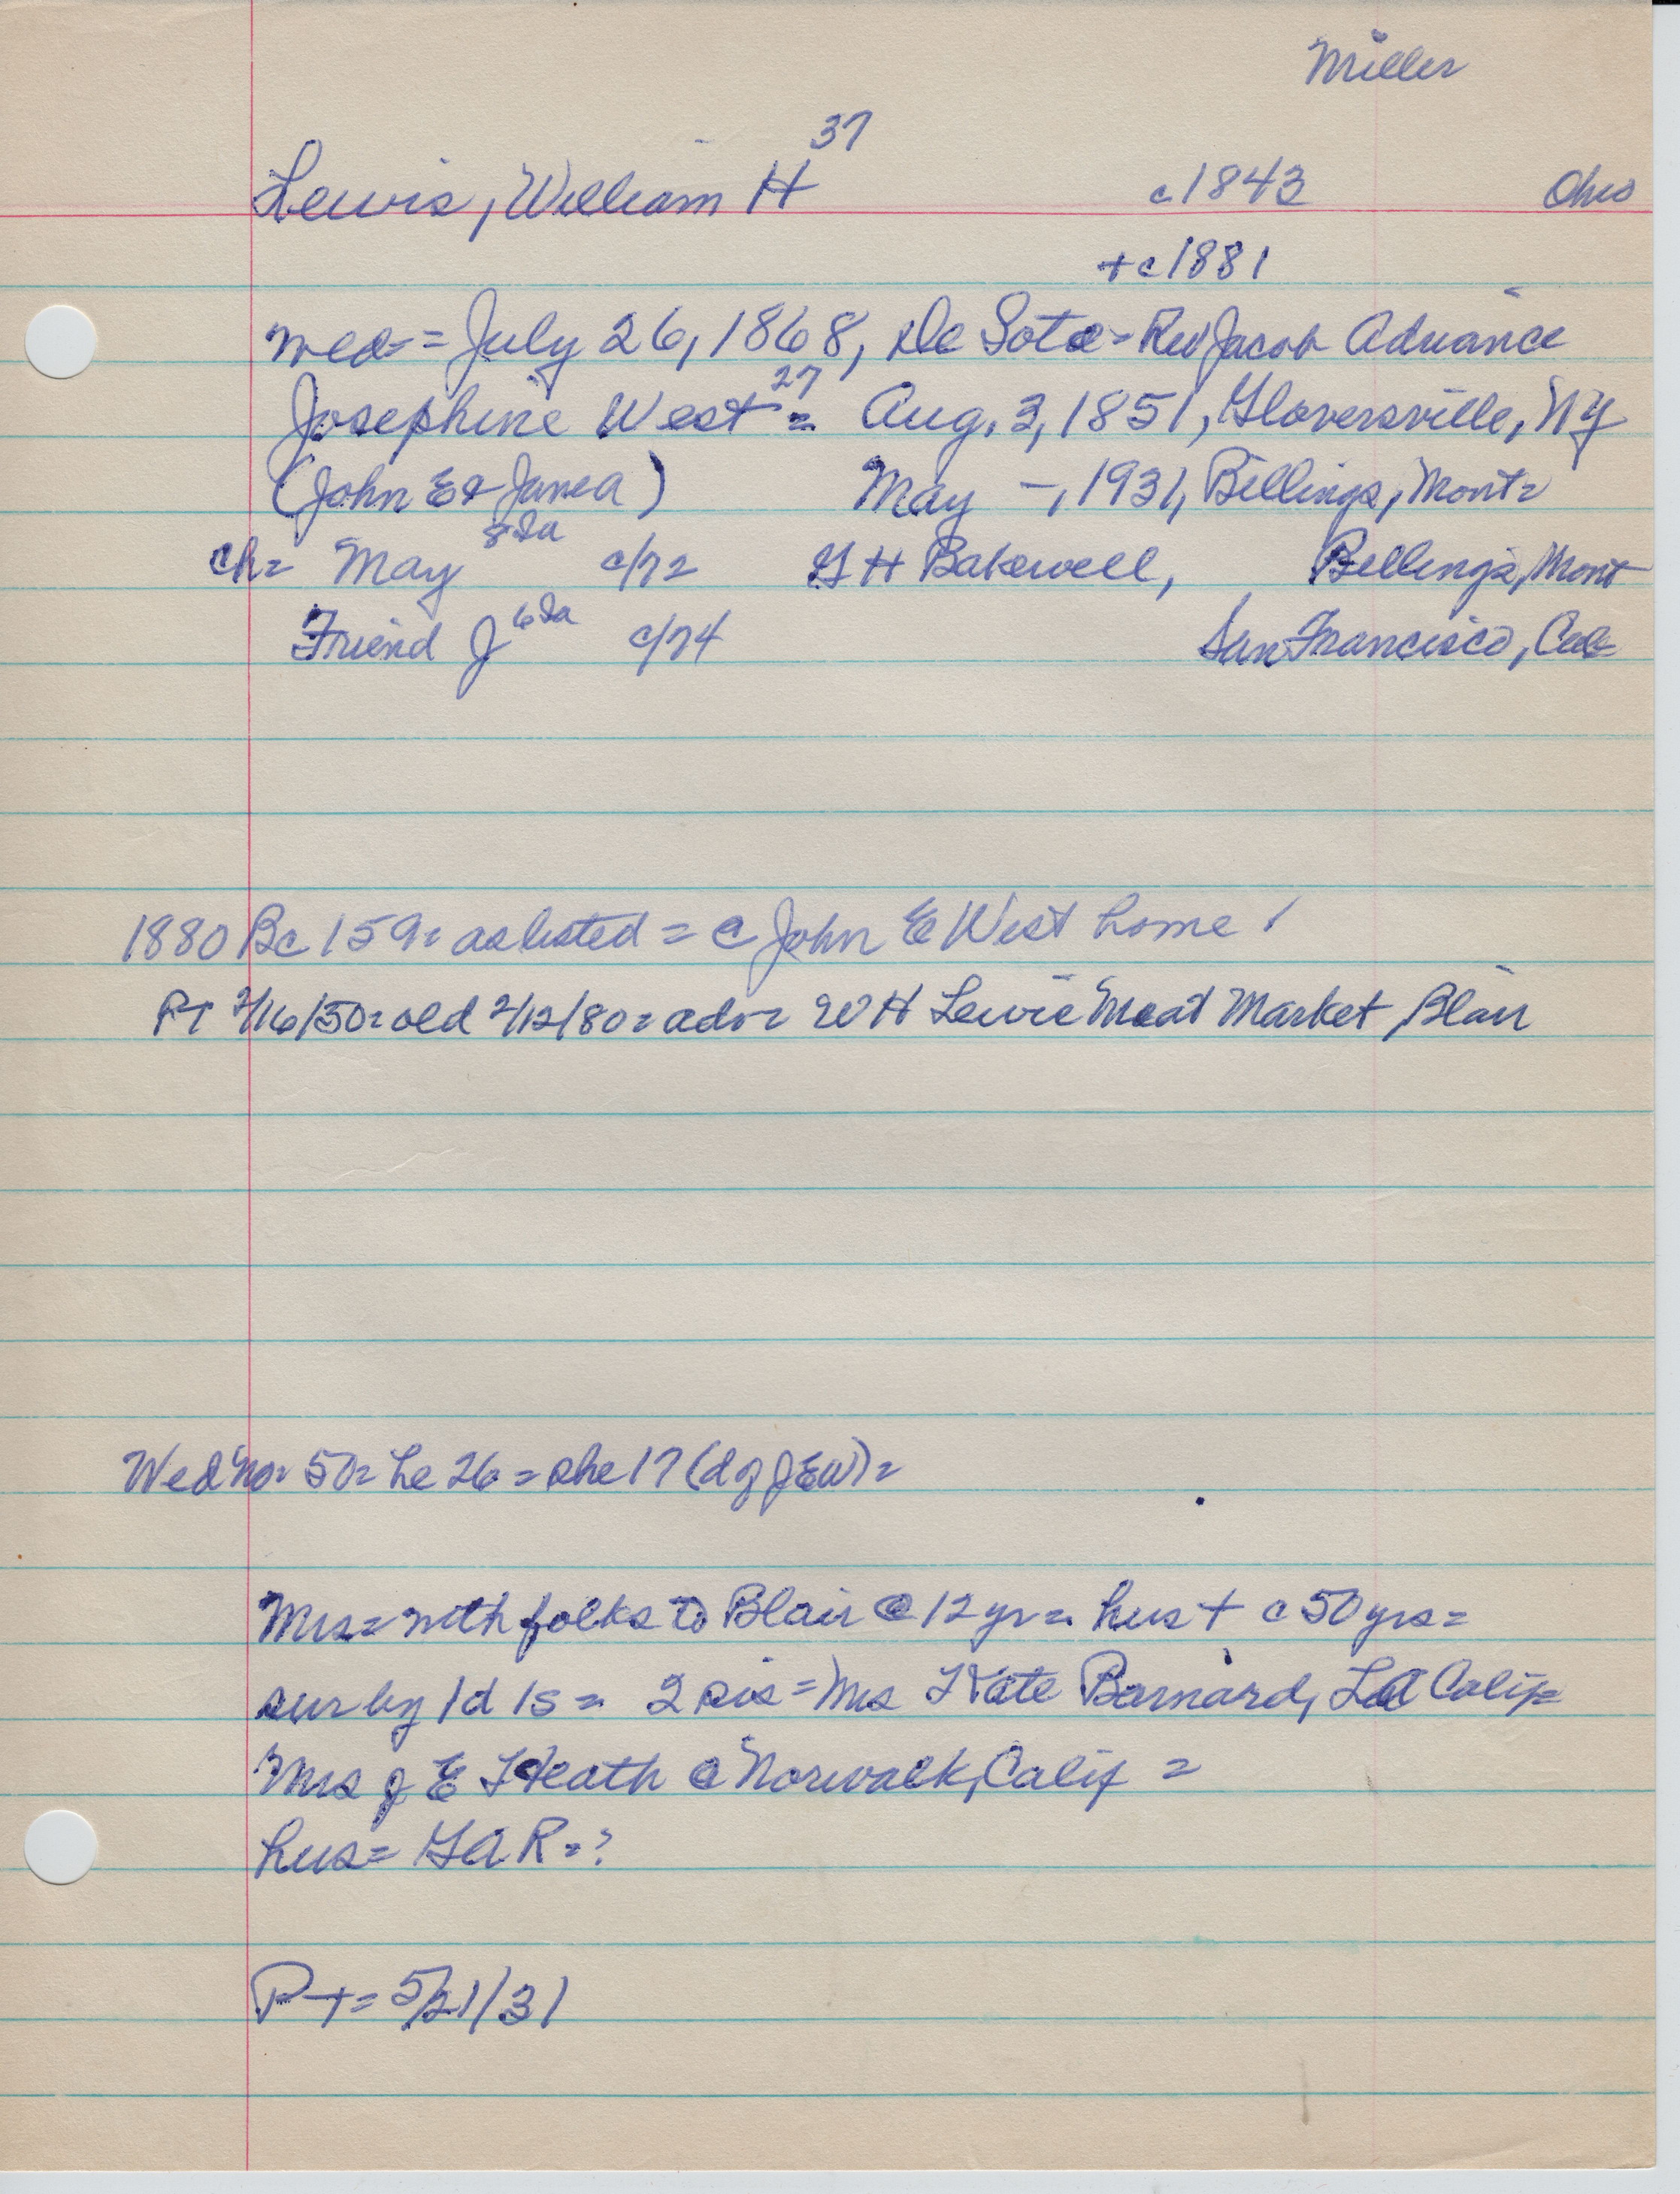 Miller
37
Lewis, William H c1843 Ohio
+c1881
wed= July 26, 1868, De Soto= Rev Jacob Advance
27
Josephine West = Aug. 3, 1851, Gloversville, NY
(John E & Jane A) May –, 1931, Billings, Mont=
ch= May 8 Ia c/72 G H Bakewell, Billings, Mont
Friend J 6 Ia c/74 San Francisco, Cal=
1880 Bc 159= as listed = c John E West home /
PT 2/16/50= old 2/12/80= adv= W H Lewis Meat Market, Blair
Wed No= 50= he 26 = she 17 (d of J E W) =
Mrs= with folks to Blair @ 12 yr= hus + c 50 yrs=
sur by 1d 1s = 2 sis = Mrs Kate Barnard, LA Calif=
Mrs J E Heath @ Norwalk, Calif =
hus= G A R = ?
PT= 5/21/31